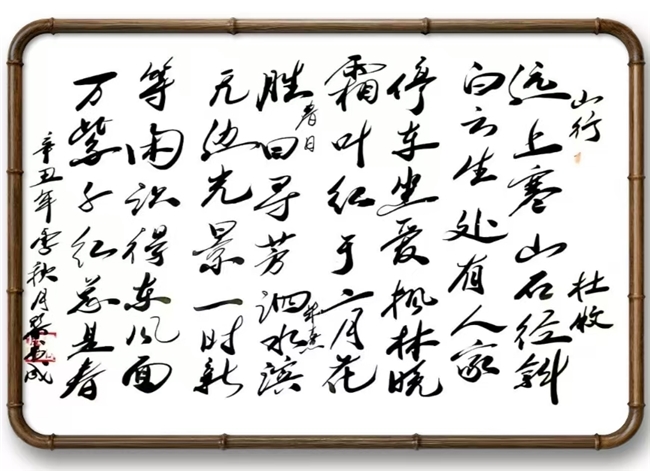 山行 杜牧
远上寒山石径斜
白云生处有人家
停车坐爱枫林晚
霜叶红于二月花
春日 朱熹
胜日寻芳泗水滨
无边光景一时新
等闲识得东风面
万紫千红总是春
辛丑年季秋月